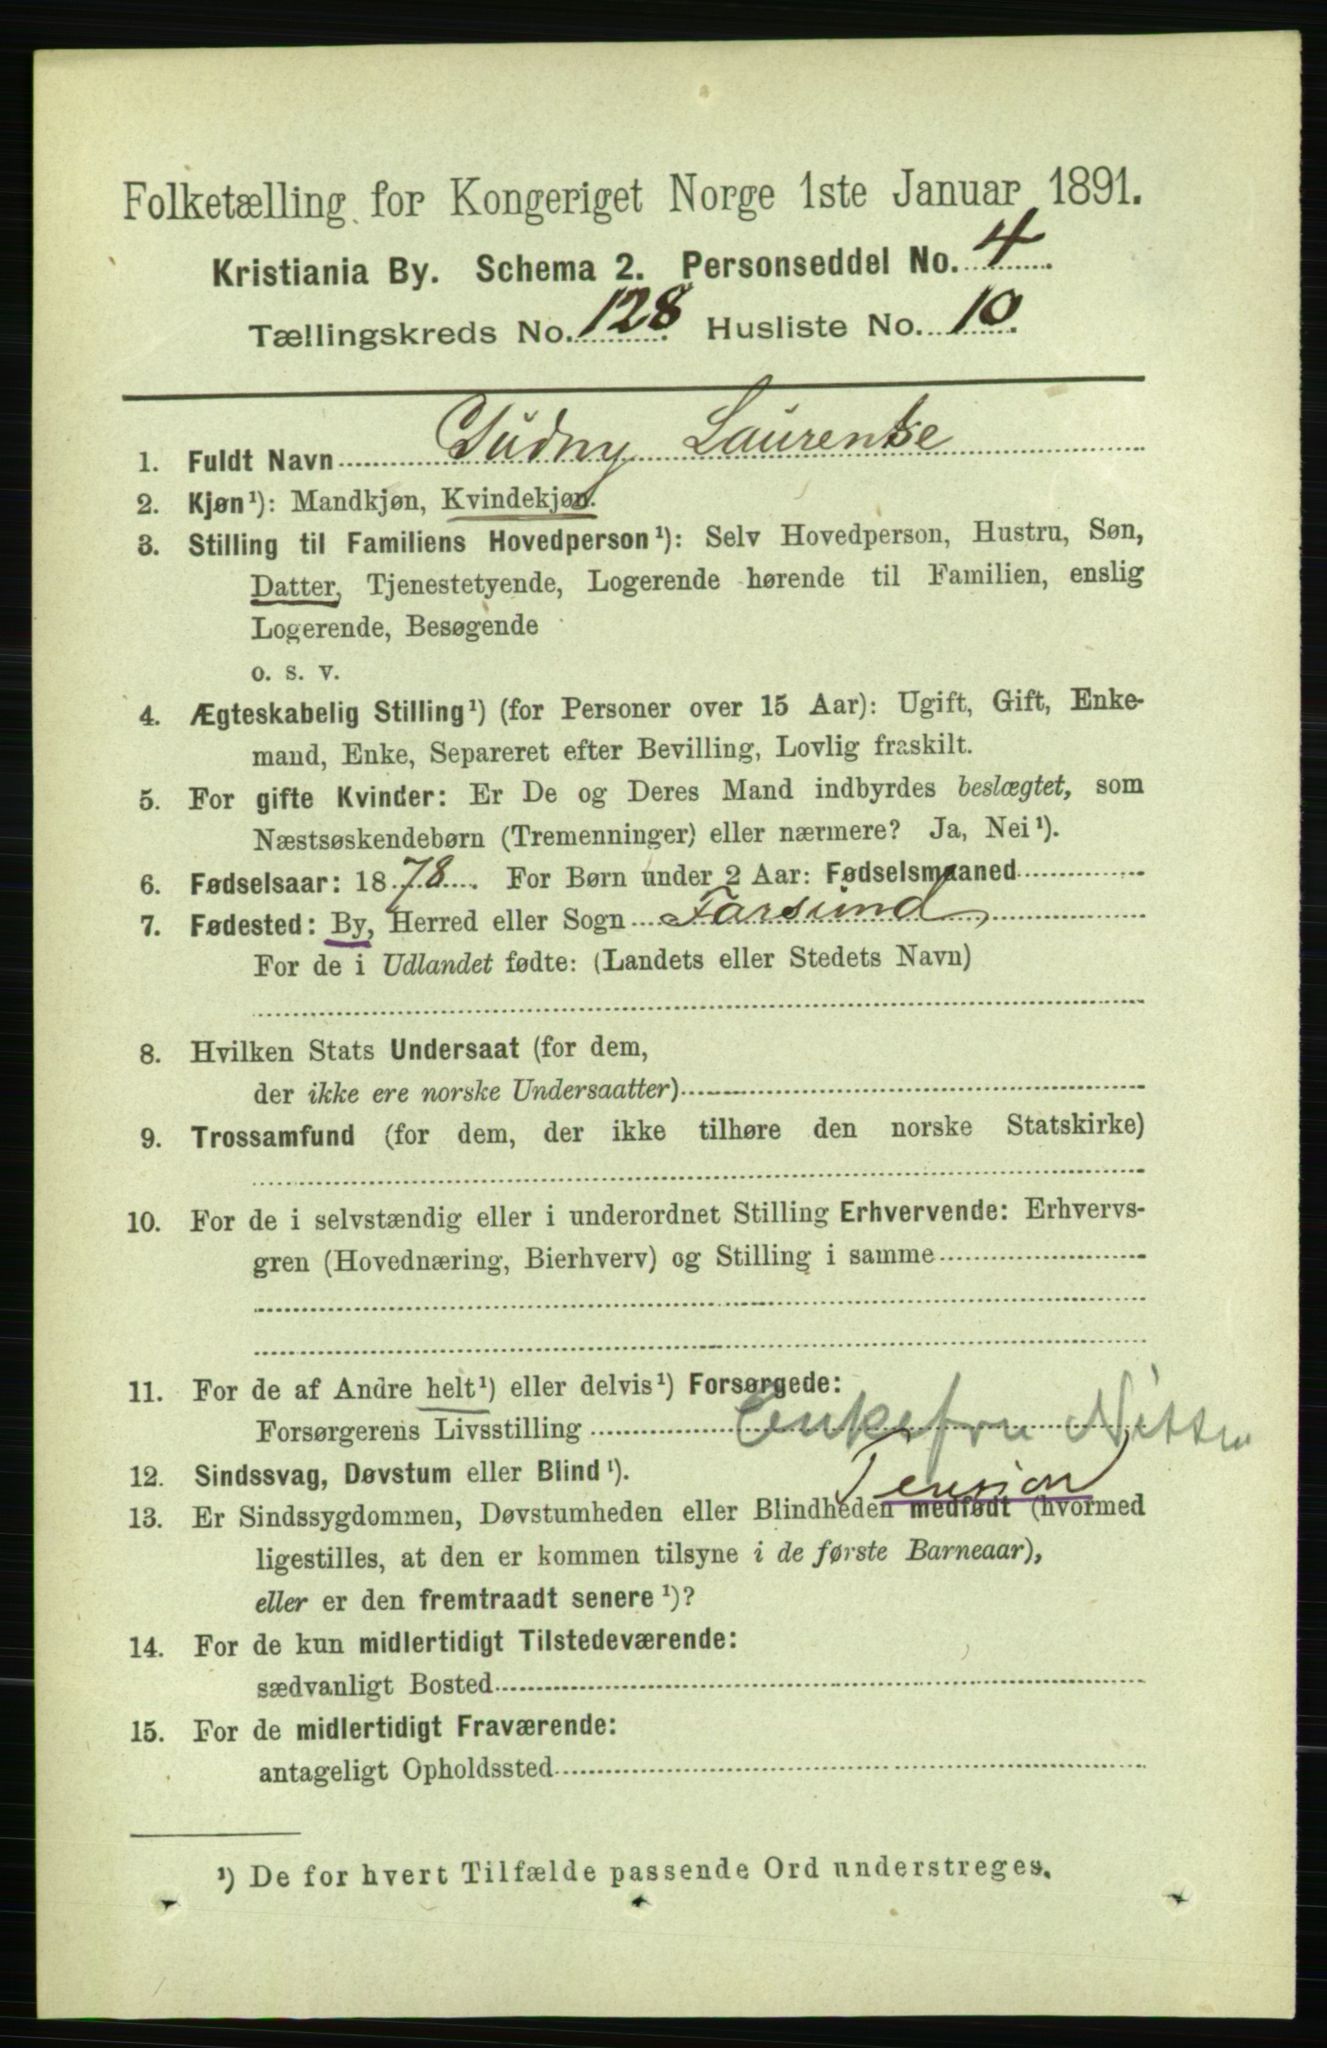 Folketælling for Kongeriget Norge 1ste Januar 1891.
Kristiania By. Schema 2. Personseddel No. 4
Tællingskreds No. 128. Husliste No. 10.
1. Fuldt Navn Gudny Laurentse
2. Kjøn¹): Mandkjøn, Kvindekjøn.
3. Stilling til Familiens Hovedperson¹): Selv Hovedperson, Hustru, Søn,
Datter, Tjenestetyende, Logerende hørende til Familien, enslig
Logerende, Besøgende
o. s. v.
4. Ægteskabelig Stilling¹) (for Personer over 15 Aar): Ugift, Gift, Enke-
mand, Enke, Separeret efter Bevilling, Lovlig fraskilt.
5. For gifte Kvinder: Er De og Deres Mand indbyrdes beslægtet, som
Næstsøskendebørn (Tremenninger) eller nærmere? Ja, Nei¹).
6. Fødselsaar: 1878. For Børn under 2 Aar: Fødselsmaaned
7. Fødested: By, Herred eller Sogn Farsund
For de i Udlandet fødte: (Landets eller Stedets Navn)
8. Hvilken Stats Undersaat (for dem,
der ikke ere norske Undersaatter)
9. Trossamfund (for dem, der ikke tilhøre den norske Statskirke)
10. For de i selvstændig eller i underordnet Stilling Erhvervende: Erhvervs-
gren (Hovednæring, Bierhverv) og Stilling i samme
11. For de af Andre helt¹) eller delvis¹) Forsørgede:
Forsørgerens Livsstilling Enkefru Nissen
Pension
12. Sindssvag, Døvstum eller Blind¹).
13. Er Sindssygdommen, Døvstumheden eller Blindheden medfødt (hvormed
ligestilles, at den er kommen tilsyne i de første Barneaar),
eller er den fremtraadt senere¹)?
14. For de kun midlertidigt Tilstedeværende:
sædvanligt Bosted
15. For de midlertidigt Fraværende:
antageligt Opholdssted
¹) De for hvert Tilfælde passende Ord understreges.